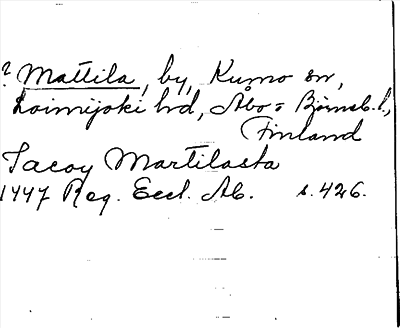 ? Mattila, by, Kumo sn,
Loimijoki hd, Åbo = Björneb. l.,
Finland
Jacoy Martilasta
1447 Reg. Eccl. Ab. s. 426.